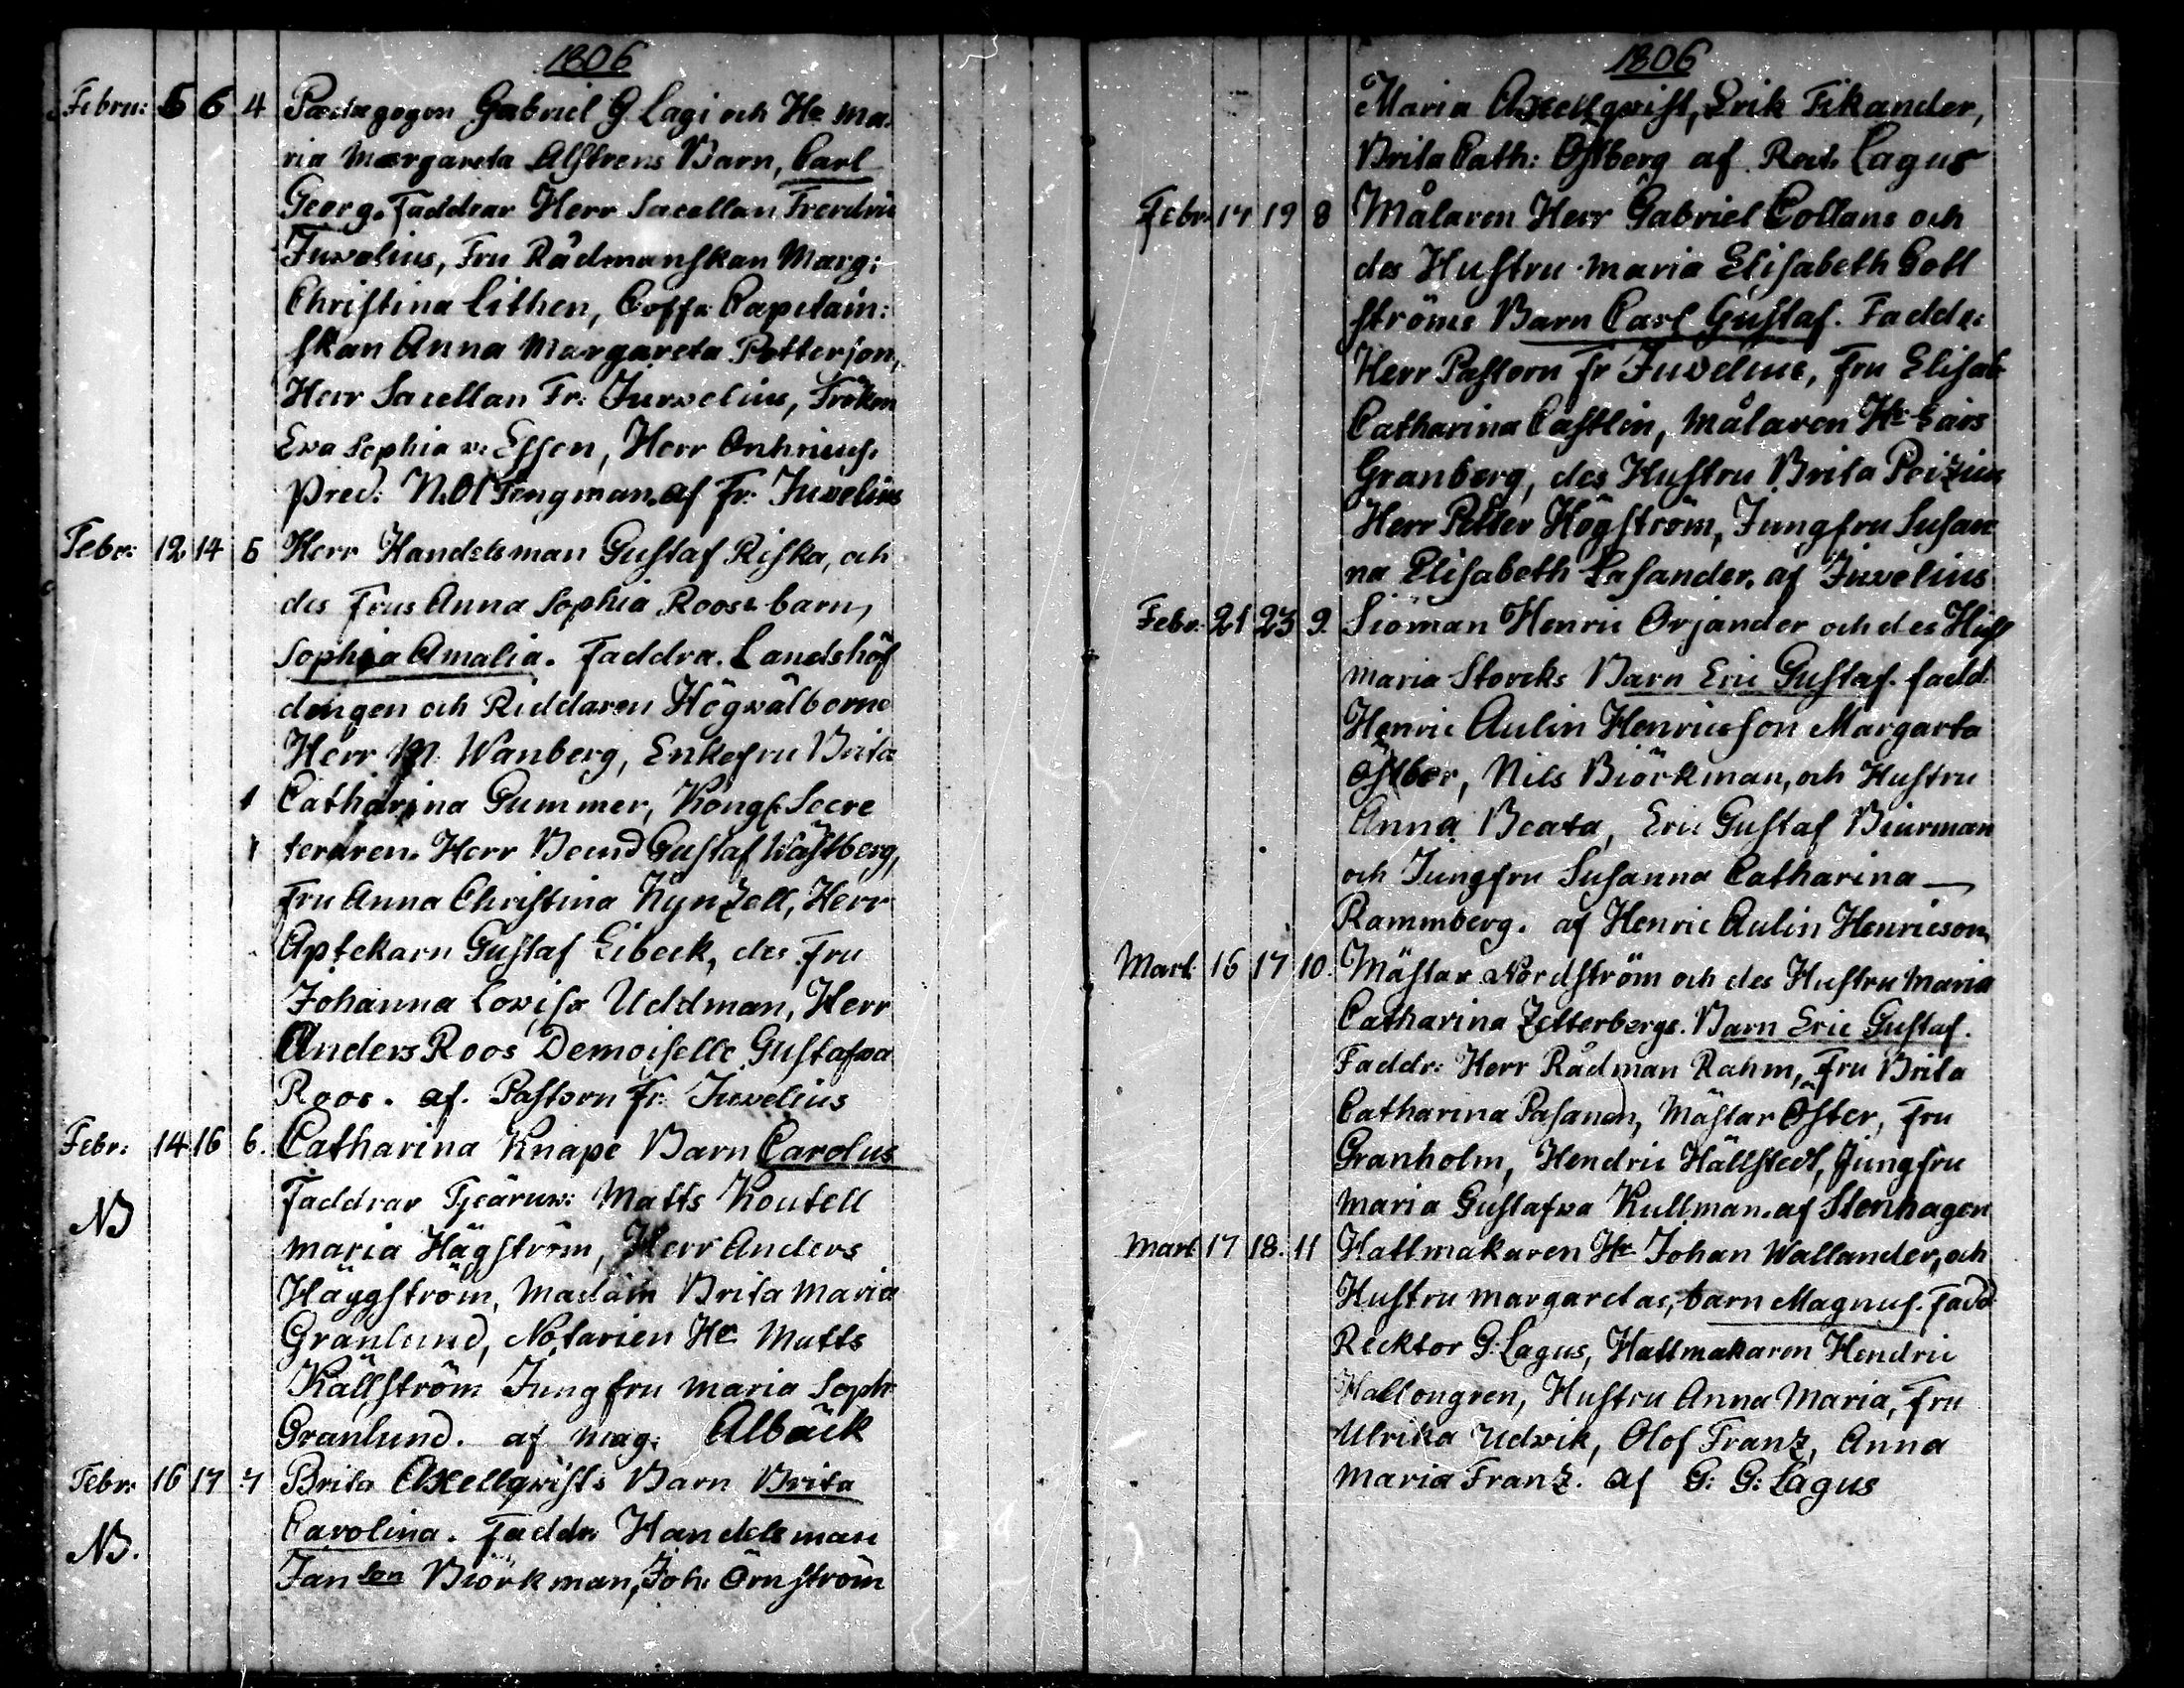 1806
Febru: 5 6 4 Pædagogen Gabriel G Lagi och Hr Ma-
ria Margareta Alstrens Barn, Carl
Georg. Faddrar Herr Sacellan Frerdric
Juvelius, Fru Rådmanskan Marg:
Christina Lithen, Coffr Capitain:
skan Anna Margareta Petterson,
Herr Sacellan Fr: Juvelius, Fröken
Eva Sophia v: Essen, Herr
Pred: N. Ol Tengman. af Fr: Juvelius
Febr: 12 14 5 Herr Handelsman Gustaf Riska, och
des Frus Anna Sophia Roos barn,
Sophia Amalia. Faddra. Landshöf
dingen och Riddaren Högwälborne
Herr M. Wanberg, Enkefru Brita
1 Catharina Gummer, Kongl. Secre
1 teraren. Herr Bernd Gustaf Wästberg,
Fru Anna Christina Kynzell, Herr
Aptekarn Gustaf Libeck, des Fru
Johanna Lowisa Uddman, Herr
Anders Roos Demoiselle Gustafwa
Roos. af. Pastorn Fr: Juvelius
Febr: 14 16 6. Catharina Knape Barn Carolus
NB
Faddrar Tjeäruw: Matts Koutell
Maria Hägström, Herr Anders
Häggström, Madam Brita Maria
Granlund, Notarien Hr Matts
Källström Jungfru Maria Soph
Granlund. af Mag: Albäck
Febr: 16 17 7 Brita Axellqwists Barn Brita
NB.
Carolina. Faddr: Handelsman
Jan son Biörkman, Joh: Örnström
1806
Maria Axellqwist, Erik Fikander,
Brita Cath: Östberg af Rect. Lagus
Febr. 17 19 8 Målaren Herr Gabriel Collans och
des Hustru Maria Elisabeth Gott
ströms Barn Carl Gustaf. Fadde:
Herr Pastorn Fr Juvelius, Fru Elisab
Catharina Castlin, Målaren Hr Lars
Granberg, des Hustru Brita Peizius
Herr Petter Högström, Jungfru Susan
na Elisabeth Lasander. af Juvelius
Febr. 21 23 9. Siöman Henric Orjander och des Hust
Maria Storcks Barn Eric Gustaf. fadd:
Henric Aulin Henricsson Margarta
Östber, Nils Biörkman, och Hustru
Anna Beata, Eric Gustaf Biurman
och Jungfru Susanna Catharina —
Rammberg. af Henric Aulin Henricson
Mart: 16 17 10. Mästar Nordström och des Hustru Maria
Catharina Zetterbergs. Barn Eric Gustaf.
Faddr: Herr Rådman Rahm, Fru Brita
Catharina Pasanen, Mästar Öster, Fru
Granholm, Hendric Hällstedt, Jungfru
Maria Gustafwa Kullman. af Stenhagen
Mart 17 18. 11 Hattmakaren Hr Johan Wallander, och
Hustru Margaretas, barn Magnus. Fadd
Recktor G: Lagus, Hattmakaren Hendric
Hallongren, Hustru Anna Maria, Fru
Ulrika Udwik, Olof Franz, Anna
Maria Franz. af G: G: Lagus